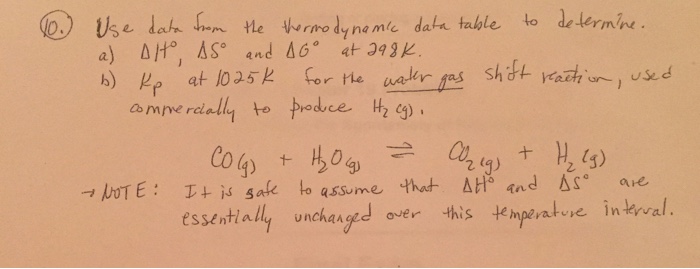 10.) Use data from the thermodynamic data table to determine.
a) ΔH°, ΔS° and ΔG° at 298K.
b) Kp at 1025K for the water gas shift reaction, used
commercially to produce H₂ (g).
CO(g) + H₂O(g) ⇌ CO₂(g) + H₂(g)
→ NOTE: It is safe to assume that ΔH° and ΔS° are
essentially unchanged over this temperature interval.